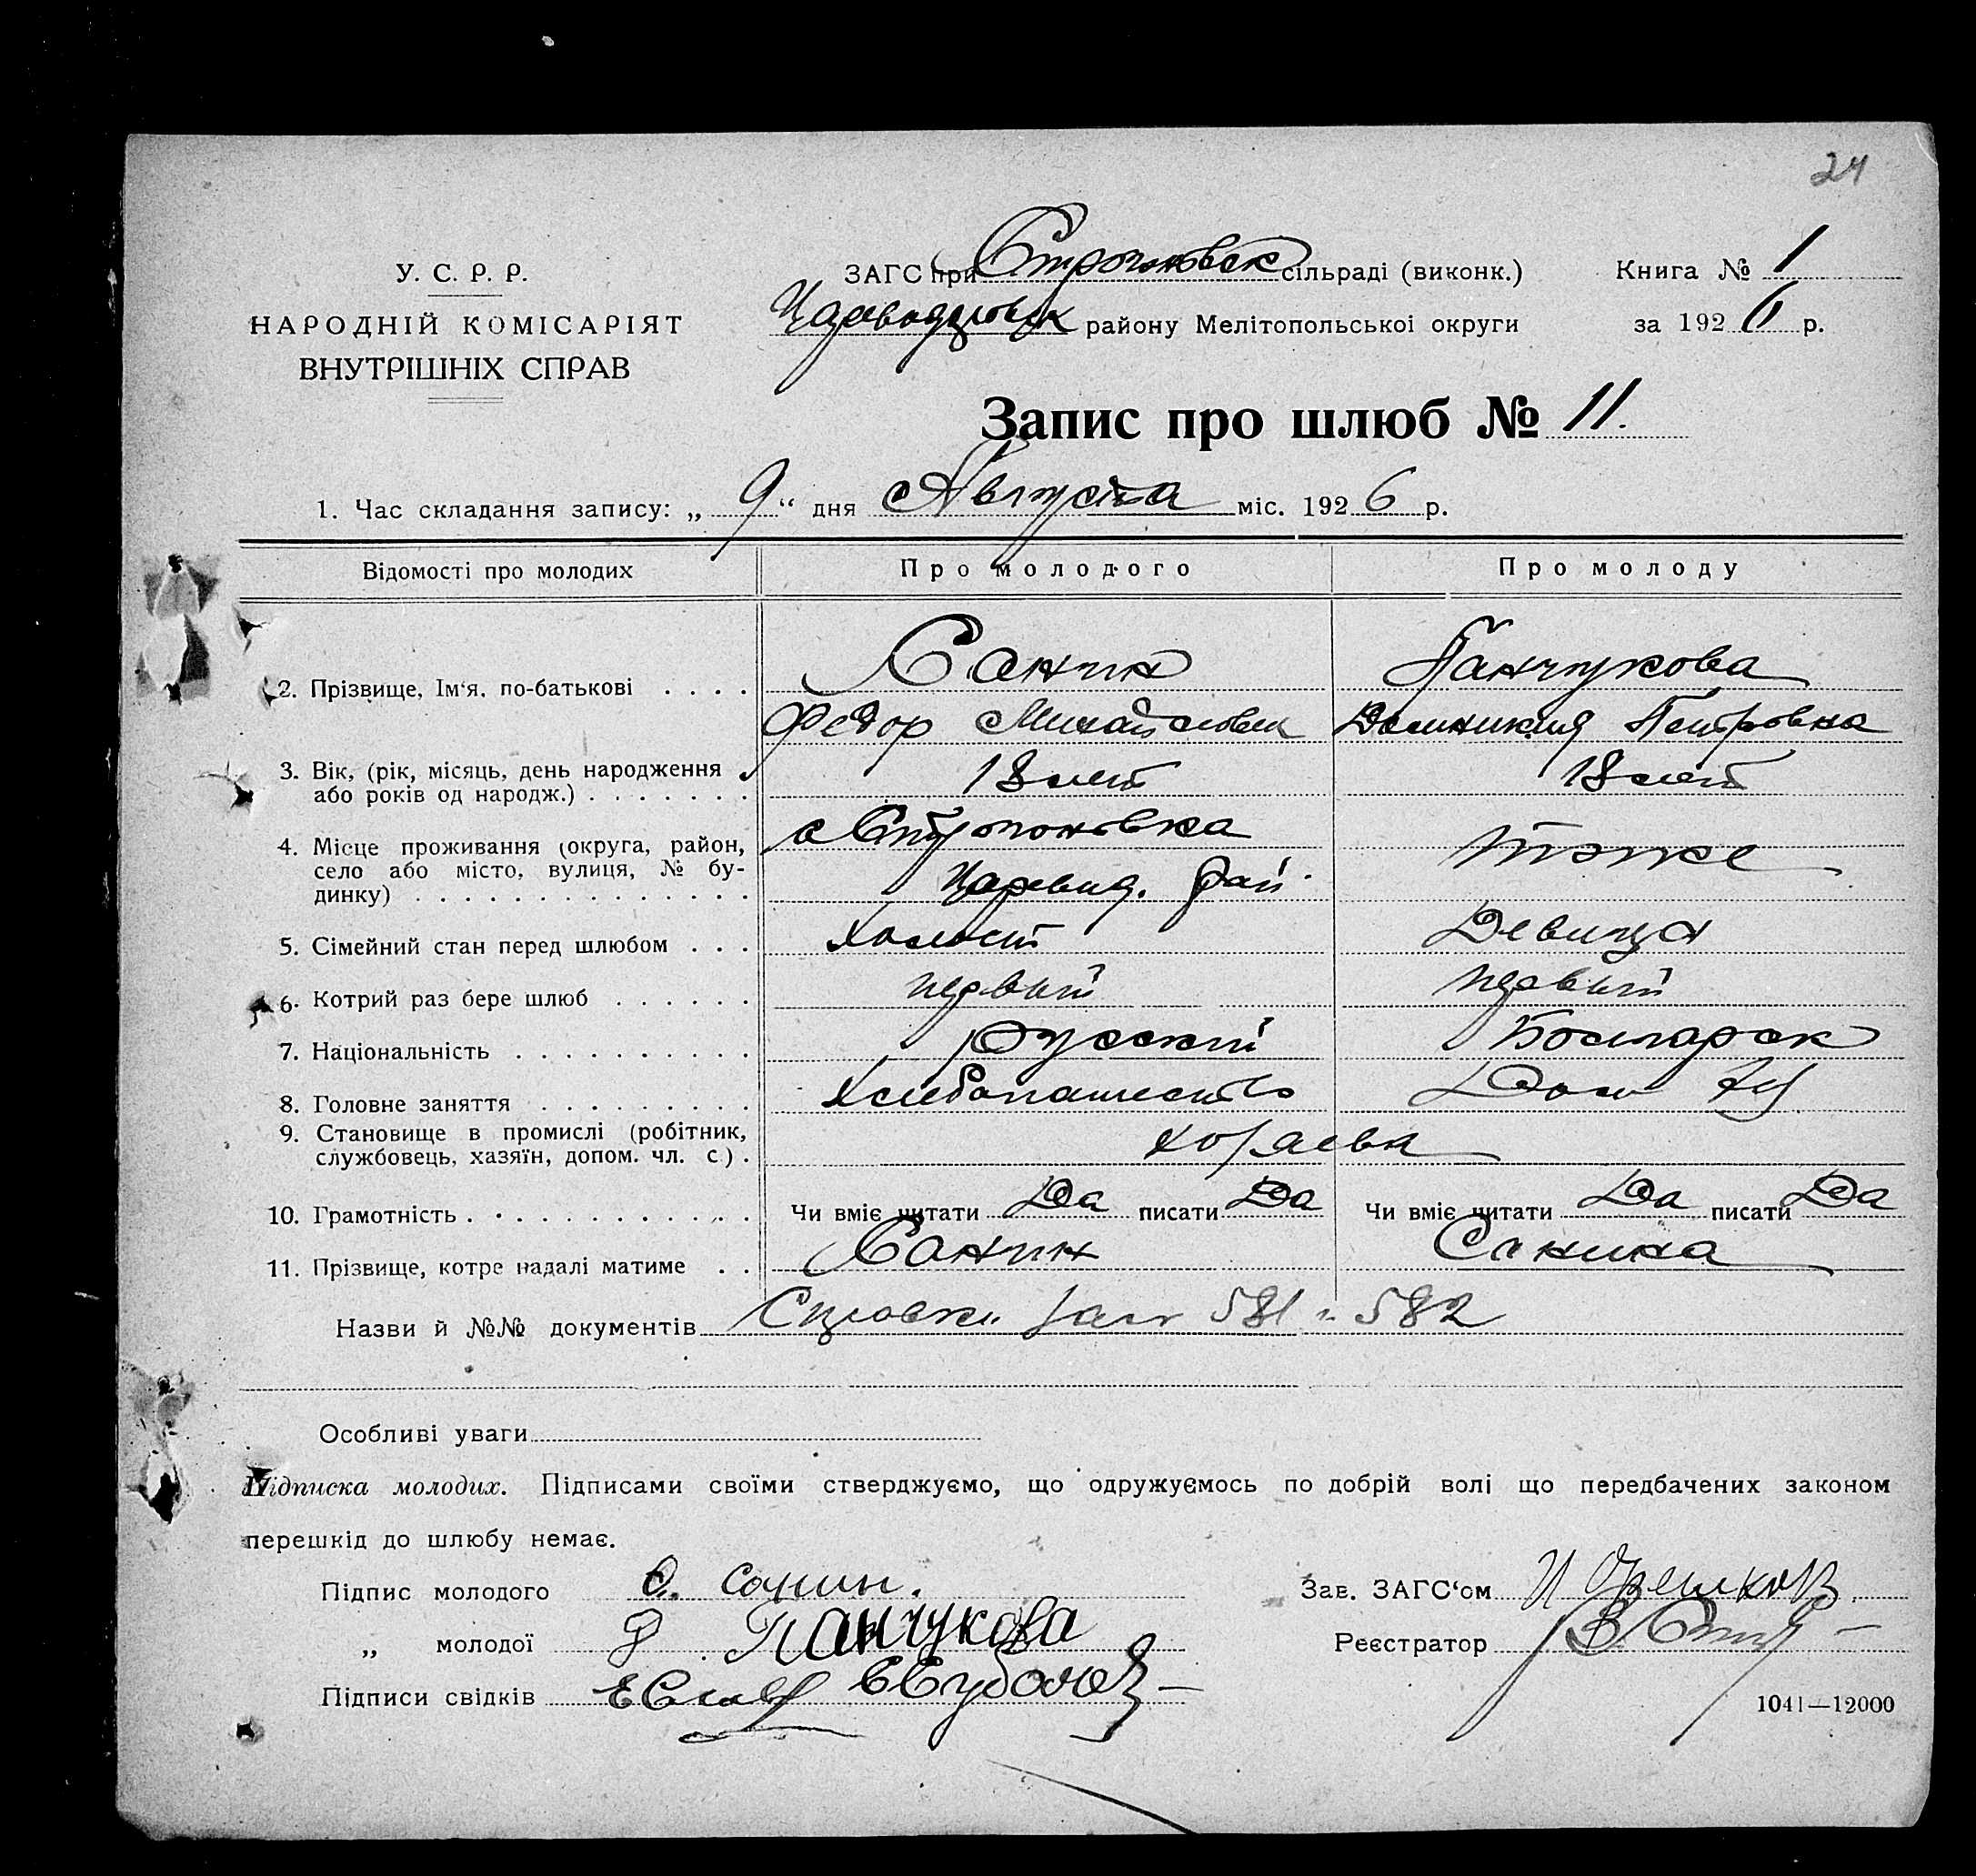 24
У. С. Р. Р.
НАРОДНІЙ КОМІСАРІЯТ
ВНУТРІШНІХ СПРАВ
ЗАГС при Строгоновск сільраді (виконк.)
району Мелітопольської округи
Книга № 1
за 1926 р.
Запис про шлюб № 11.
1. Час складання запису: „ 9 “ дня Августа міс. 1926 р.
Відомості про молодих Про молодого Про молоду
2. Прізвище, Ім‘я, по-батькові . . . . Санин Панчукова
Федор Михайлович Петровна
3. Вік, (рік, місяць, день народження 18 лет 18 лет
або років од народж.) . . . . . . .
4. Місце проживання (округа, район, с Строгоновка тоже
село або місто, вулиця, № бу-
динку) . . . . . . . . . . . . . . Царевид. рай.
5. Сімейний стан перед шлюбом . . . холост Девица
6. Котрий раз бере шлюб . . . . . . первый первый
7. Національність . . . . . . . . . . русский Болгарск
8. Головне заняття . . . . . . . . . Хлебопашество Дом
9. Становище в промислі (робітник,
службовець, хазяїн, допом. чл. с.) .
10. Грамотність . . . . . . . . . . . . Чи вміє читати Да писати Да Чи вміє читати Да писати Да
11. Прізвище, котре надалі матиме . . Санин Санина
Назви й №№ документів Справки 581 и 582
Особливі уваги
Підписка молодих. Підписами своїми стверджуємо, що одружуємось по добрій волі що передбачених законом
перешкід до шлюбу немає.
Підпис молодого Санин.
Зав. ЗАГС‘ом
„ молодої Панчукова
Реєстратор
Підписи свідків
1041—12000